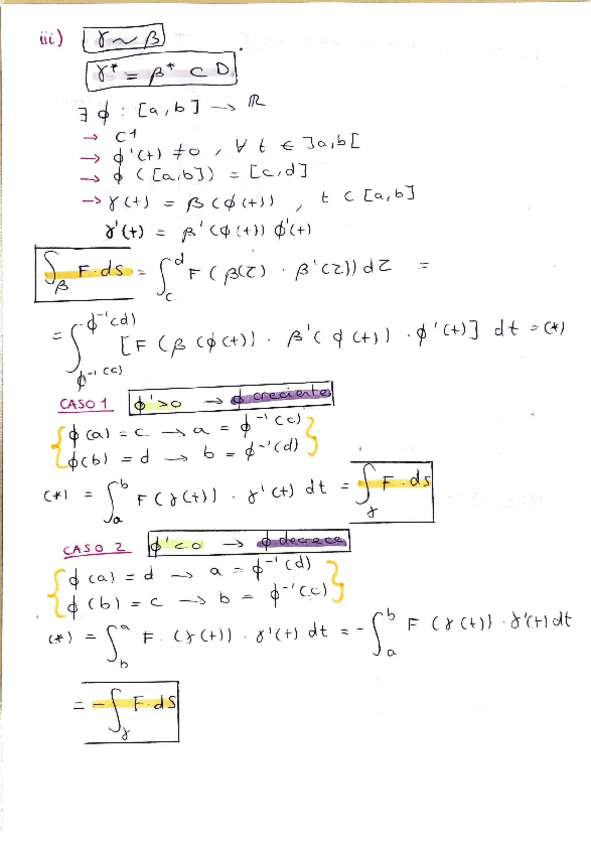 iii) γ ~ β .
γ* = β* ⊂ D
∃ ϕ : [a,b] → ℝ
→ C1
→ ϕ'(t) ≠ 0 , ∀ t ∈ ]a,b[
→ ϕ ([a,b]) = [c,d]
→ γ(t) = β(ϕ(t)) , t ⊂ [a,b]
γ'(t) = β'(ϕ(t)) ϕ'(t)
∫_β F·ds = ∫_c^d F(β(τ) · β'(τ)) dτ =
= ∫_{ϕ⁻¹(c)}^{ϕ⁻¹(d)} [F(β(ϕ(t)) · β'(ϕ(t)) · ϕ'(t)] dt = (*)
CASO 1 ϕ' > 0 → ϕ creciente
{ϕ(a) = c → a = ϕ⁻¹(c)
ϕ(b) = d → b = ϕ⁻¹(d)}
(*) = ∫_a^b F(γ(t)) · γ'(t) dt = ∫_γ F·ds
CASO 2 ϕ' < 0 → ϕ decrece
{ϕ(a) = d → a = ϕ⁻¹(d)
ϕ(b) = c → b = ϕ⁻¹(c)}
(*) = ∫_b^a F·(γ(t)) · γ'(t) dt = -∫_a^b F(γ(t)) · γ'(t) dt
= -∫_γ F·ds